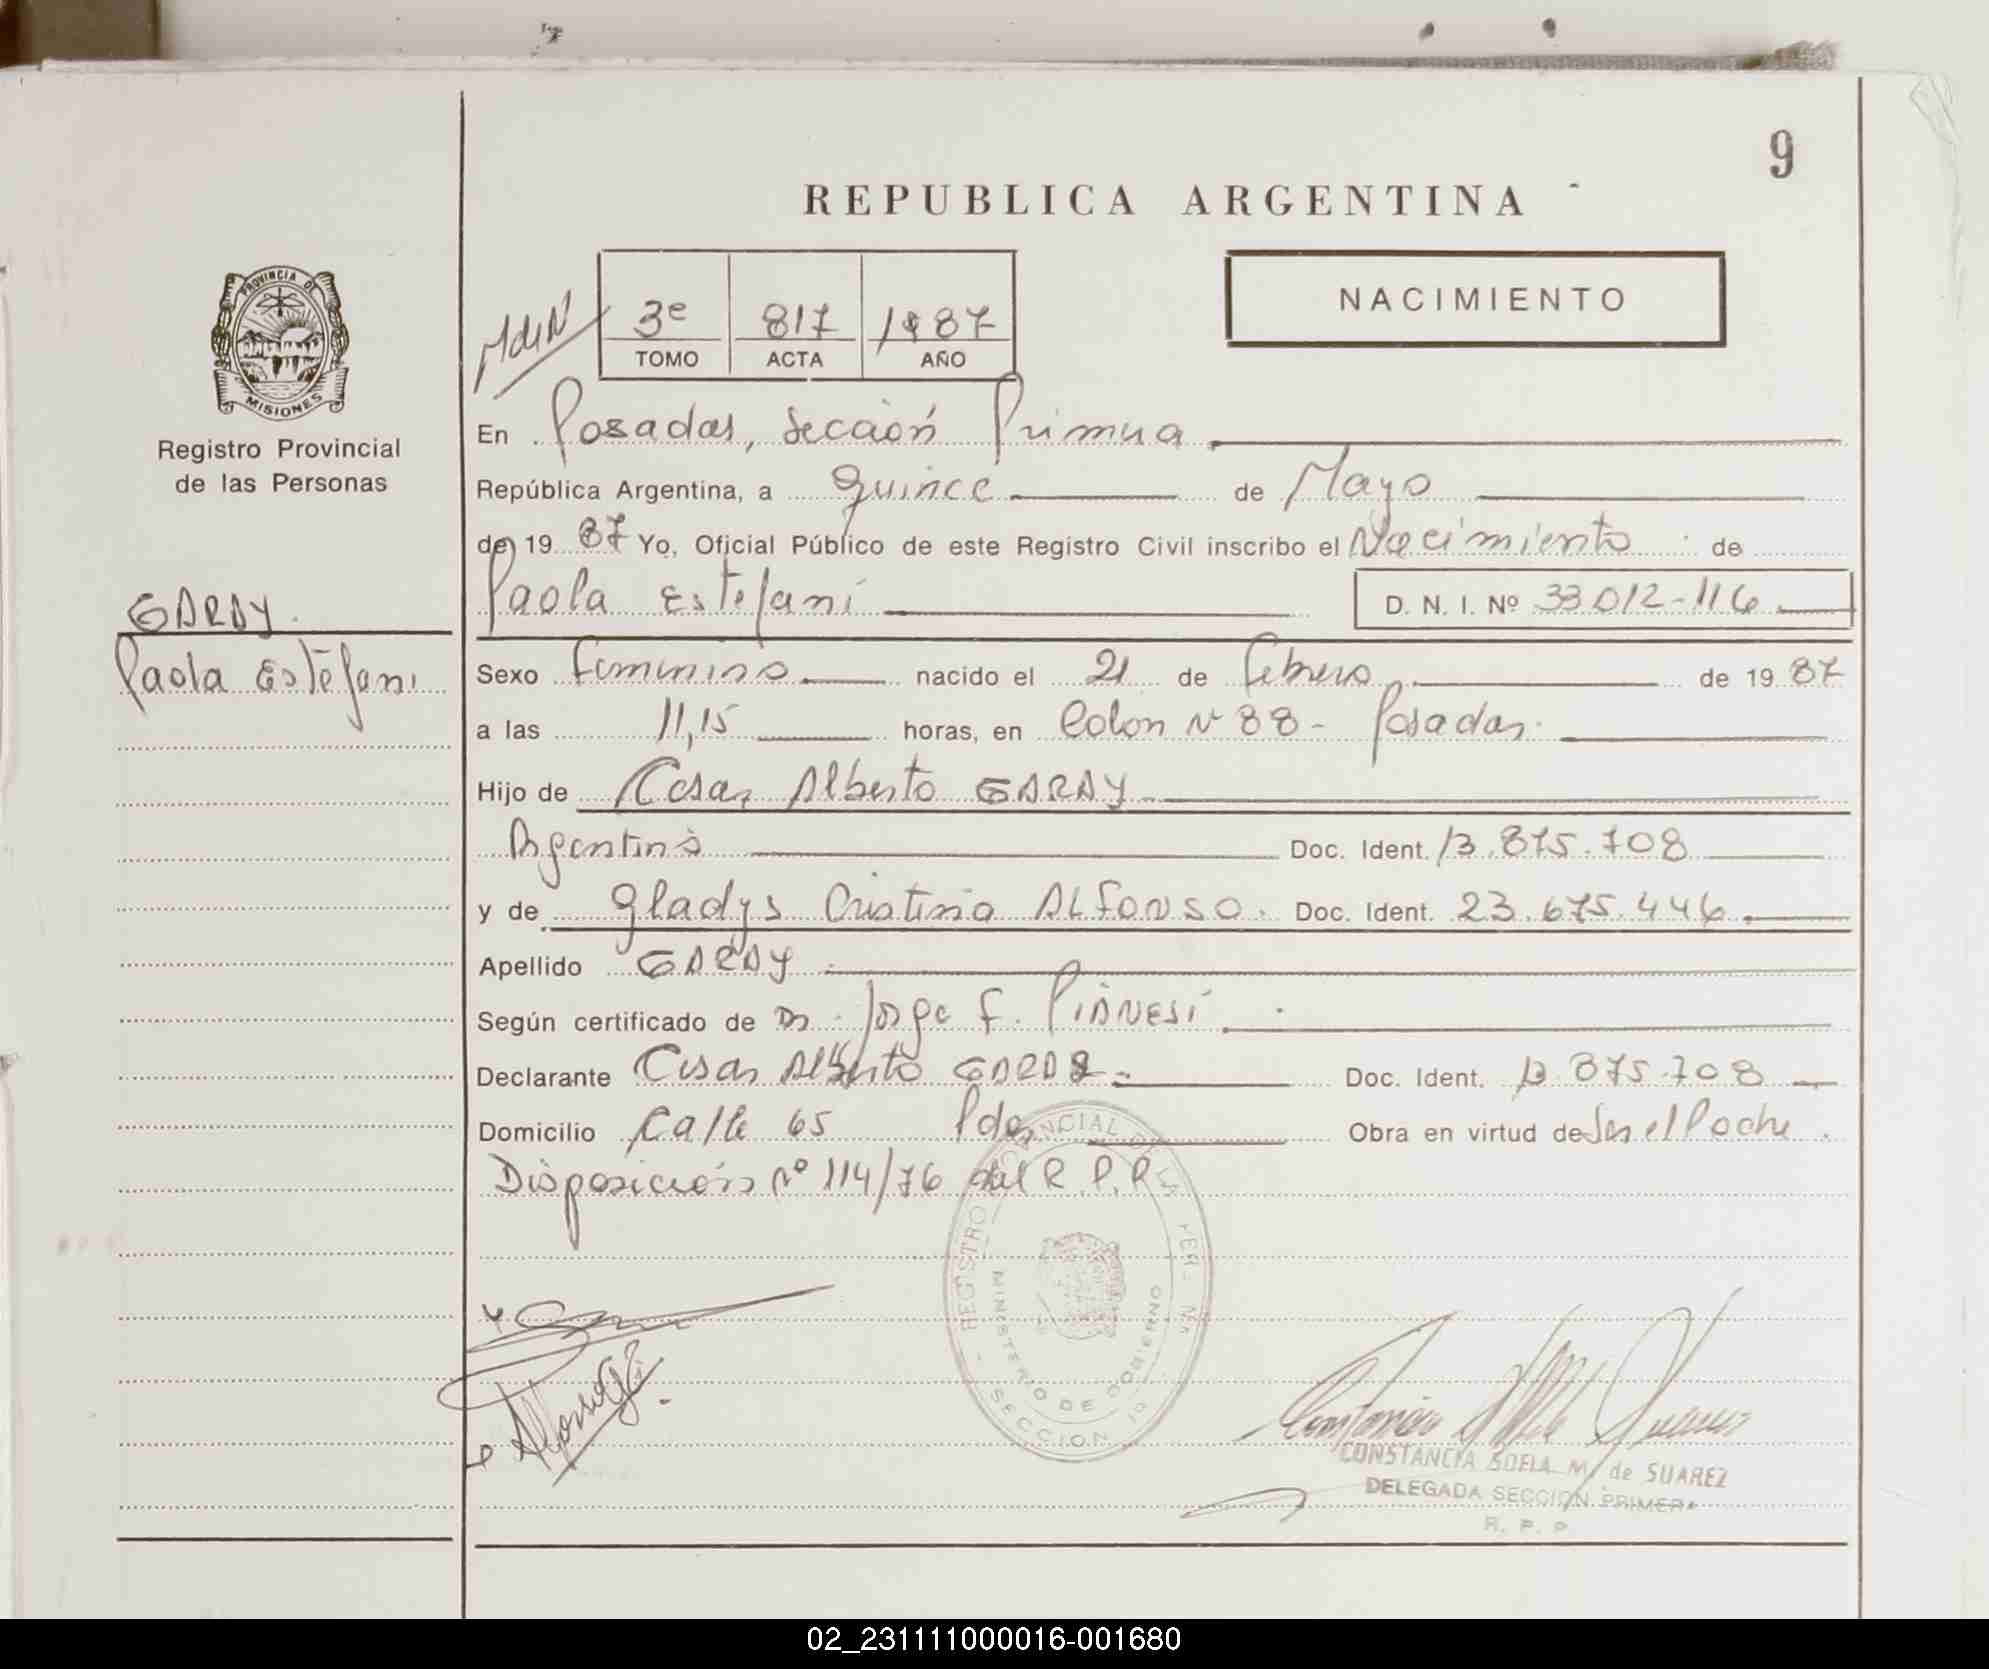 9
REPUBLICA ARGENTINA
PROVINCIA DE
MISIONES
Registro Provincial
de las Personas
3e 817 1987
TOMO ACTA AÑO
NACIMIENTO
En Posadas, Sección Primera
República Argentina, a quince de Mayo
de 19 87 Yo, Oficial Público de este Registro Civil inscribo el Nacimiento de
Paola Estefani D. N. I. Nº 33.012-116
GARAY.
Paola Estefani
Sexo femenino nacido el 21 de febrero de 19 87
a las 11,15 horas, en Colon Nº 88 - Posadas.
Hijo de Cesar Alberto GARAY
Argentino Doc. Ident. 13.875.708
y de Gladys Cristina ALFONSO. Doc. Ident. 23.675.446
Apellido GARAY
Según certificado de Dr. Jorge F. PIANESI
Declarante Cesar Alberto GARAY Doc. Ident. 13.875.708
Domicilio Calle 65 Pdas Obra en virtud de
Disposición Nº 114/76 del R.P.P.
REGISTRO PROVINCIAL DE LA PER.
MINISTERIO DE GOBIERNO
SECCION
CONSTANCIA SOFIA M. de SUAREZ
DELEGADA SECCION PRIMERA
R. P. P.
02_231111000016-001680